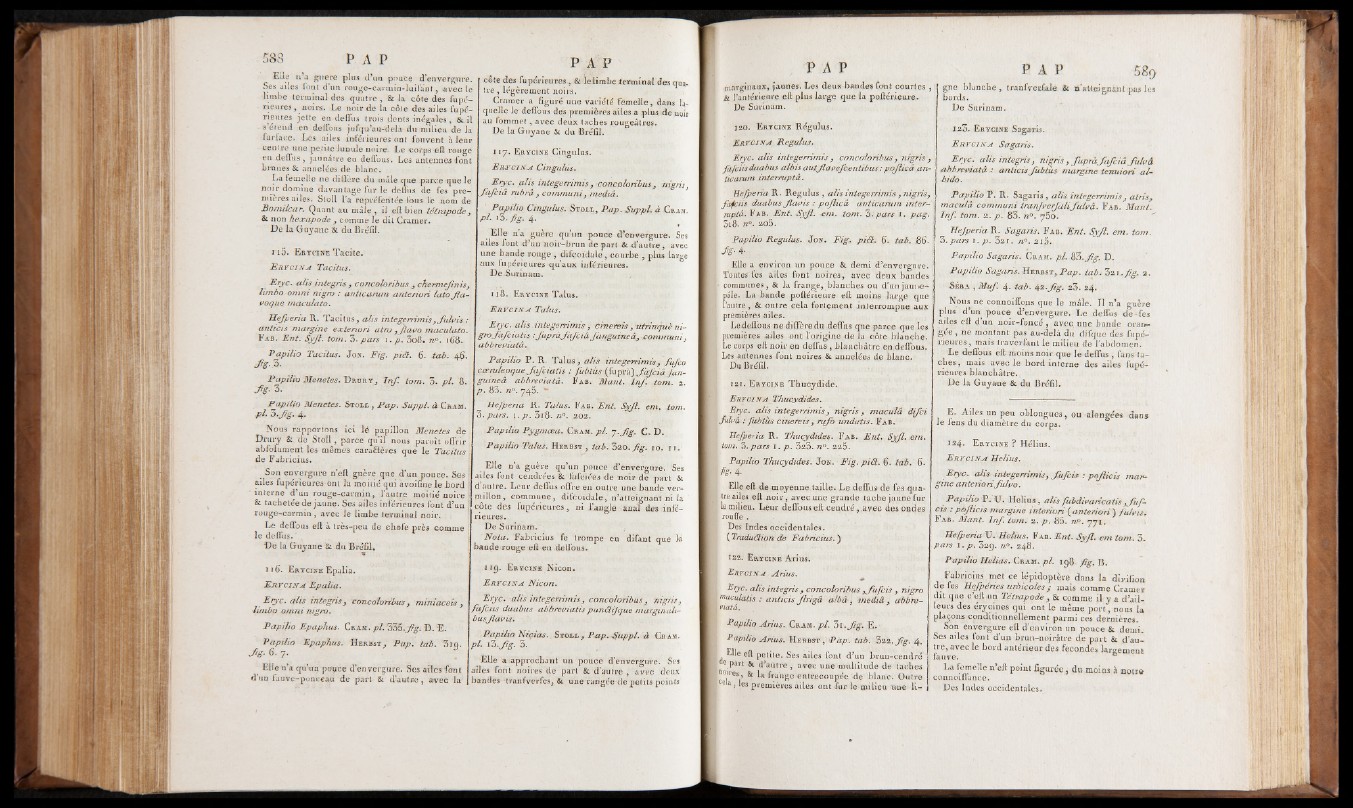 588 P A P
Elle n'a guère plus d'un pouce d'envergure.
Ses ailes font d'un rouge-carmin-luifant, avec le
limbe terminal des quatre, & la côte des fupé-
rieures, noirs. Le noir de la côte des ailes fupé-
rieures jette en deffus trois dents inégales, & il
s'étend en deffous jufqu'au-delà du milieu de la
furface. Les ailes inférieures ont fouvent à leur
centre une petite lunule noire. Le corps eft rouge
en deffus, jaunâtre en deffous. Les antennes font
brunes & annelées de blanc.
La femelle ne diffère du mâle que parce que le
noir domine davantage fur le deffus de fes pre-
mières ailes. Stoll l'a repréfentée fous le nom de
Bomilcar. Quant au mâle, il eft bien tétrapode,
& non hexapode, comme le dit Cramer.
De la Guyane & du Bréfil.
115. ERYCINE Tacite.
ERYCINA Tacitus.
Eryc. alis integris, concoloribus, chermefinis,
limbo omni nigro : anticarum anteriori lato fla-
voque maculato.
Hefperia R. Tacitus, alis integerrimis, fulvis :
anticis margine exteriori atro, flavo maculato.
FAB. Ent. Syft. tom. 3. pars 1. p. 308. n°. 168.
Papilio Tacitus. JON. Fig. pict. 6. tab. 46.
fig. 3.
Papilio Menetes. DRURY, Inf. tom. 3. pl. 8.
fig. 3.
Papilio Menetes. STOLL, Pap. Suppl. à CRAM.
pl. 3. fig. 4.
Nous rapportons ici le papillon Menetes de
Drury & de Stoll, parce qu'il nous paroît offrir
abfolument les mêmes caractères que le Tacitus
de Fabricius.
Son envergure n'eft guère que d'un pouce. Ses
ailes fupérieures ont la moitié qui avoifine le bord
interne d'un rouge-carmin, l'autre moitié noire
& tachetée de jaune. Ses ailes inférieures font d'un
rouge-carmin, avec le limbe terminal noir.
Le deffous eft à très-peu de chofe près comme
le deffus.
De la Guyane & du Bréfil.
116. ERYCINE Epalia.
ERYCINA Epalia.
Eryc. alis integris, concoloribus, miniaceis,
limbo omni nigro.
Papilio Epaphus. CRAM. pl. 336. fig. D. E.
Papilio Epaphus. HERBST, Pap. tab. 319.
fig. 6. 7.
Elle n'a qu'un pouce d'envergure. Ses ailes font
d'un fauve-ponceau de part & d'autre, avec la
P A P
côte des fupérieures, & le limbe terminal des qua-
tre, légèrement noirs.
Cramer a figuré une variété femelle, dans la-
quelle le deffous des premières ailes a plus de noir
au fommet, avec deux taches rougeâtres.
De la Guyane & du Bréfil.
117. ERYCINE Cingulus.
ERYCINA Cingulus.
Eryc. alis integerrimis, concoloribus, nigris,
fafciâ rubrâ, communi, mediâ.
Papilio Cingulus. STOLL, Pap. Suppl. à CRAM.
pl. 13. fig. 4.
Elle n'a guère qu'un pouce d'envergure. Ses
ailes font d'un noir-brun de part & d'autre, avec
une bande rouge, difcoïdale, courbe, plus large
aux fupérieures qu'aux inférieures.
De Surinam.
118. ERYCINE Talus.
ERYCINA Talus.
Eryc. alis integerrimis, cinereis, utrinquè ni-
gro fafciatis : fuprà fafciâ fanguineâ, communi,
abbreviatâ.
Papilio P. R. Talus, alis integerrimis, fufco
cæruleoque fafciatis : fubtùs (fuprà) fafciâ fan-
guineâ abbreviatâ. FAB. Mant. Inf. tom. 2.
p. 83. n°. 745.
Hefperia R. Talus. FAB. Ent. Syft. em. tom.
3. pars. 1. p. 318. n°. 202.
Papilio Pygmæa. CRAM. pl. 7. fig. C. D.
Papilio Talus. HERBST, tab. 320. fig. 10. 11.
Elle n'a guère qu'un pouce d'envergure. Ses
ailes font cendrées & fafciées de noir de part &
d'autre. Leur deffus offre en outre une bande ver-
millon, commune, difcoïdale, n'atteignant ni la
côte des fupérieures, ni l'angle anal des infé-
rieures.
De Surinam.
Nota. Fabricius fe trompe en difant que la
bande rouge eft en deffous.
119. ERYCINE Nicon.
ERYCINA Nicon.
Eryc. alis integerrimis, concoloribus, nigris,
fafciis duabus abbreviatis punctifque marginali-
bus flavis.
Papilio Nicias. STOLL, Pap. Suppl. à CRAM.
pl. 13. fig. 3.
Elle a approchant un pouce d'envergure. Ses
ailes font noires de part & d'autre, avec deux
bandes tranfverfes, & une rangée de petits points
P A P
marginaux, jaunes. Les deux bandes font courtes,
& l'antérieure eft plus large que la poftérieure.
De Surinam.
120. ERYCINE Régulus.
ERYCINA Regulus.
Eryc. alis integerrimis, concoloribus, nigris,
fafciis duabus albis aut flavefcentibus : pofticâ an-
ticarum interruptâ.
Hefperia R. Regulus, alis integerrimis, nigris,
fafciis duabus flavis : pofticâ anticarum inter-
ruptâ. FAB. Ent. Syft. em. tom. 3. pars 1. pag.
318. n°. 203.
Papilio Regulus. JON. Fig. pict. 6. tab. 86.
fig. 4.
Elle a environ un pouce & demi d'envergure.
Toutes fes ailes font noires, avec deux bandes
communes, & la frange, blanches ou d'un jaune-
pâle. La bande poftérieure eft moins large que
l'autre, & outre cela fortement interrompue aux
premières ailes.
Le deffous ne diffère du deffus que parce que les
premières ailes ont l'origine de la côte blanche.
Le corps eft noir en deffus, blanchâtre en deffous.
Les antennes font noires & annelées de blanc.
Du Bréfil.
121. ERYCINE Thucydide.
ERYCINA Thucydides.
Eryc. alis integerrimis, nigris, maculâ difci
fulvâ : fubtùs cinereis, rufo undatis. FAB.
Hefperia R. Thucydides. FAB. Ent. Syft. em.
tom. 3. pars 1. p. 323. n°. 225.
Papilio Thucydides. JON. Fig. pict. 6. tab. 6.
fig. 4.
Elle eft de moyenne taille. Le deffus de fes qua-
tre ailes eft noir, avec une grande tache jaune fur
le milieu. Leur deffous eft cendré, avec des ondes
rouffes.
Des Indes occidentales.
(Traduction de Fabricius.)
122. ERYCINE Arius.
ERYCINA Arius.
Eryc. alis integris, concoloribus, fufcis, nigro
maculatis : anticis ftrigâ albâ, mediâ, abbre-
viatâ.
Papilio Arius. CRAM. pl. 31. fig. E.
Papilio Arius. HERBST, Pap. tab. 322. fig. 4.
Elle eft petite. Ses ailes font d'un brun-cendré
de part & d'autre, avec une multitude de taches
noires, & la frange entrecoupée de blanc. Outre
cela, les premières ailes ont fur le milieu une li-
P A P 589
gne blanche, tranfverfale & n'atteignant pas les
bords.
De Surinam.
123. ERYCINE Sagaris.
ERYCINA Sagaris.
Eryc. alis integris, nigris, fuprà fafciâ fulvâ
abbreviatâ : anticis fubtùs margine tenuiori al-
bido.
Papilio P. R. Sagaris, alis integerrimis, atris,
maculâ communi tranfverfali fulvâ. FAB. Mant.
Inf. tom. 2. p. 83. n°. 750.
Hefperia R. Sagaris. FAB. Ent. Syft. em. tom.
3. pars 1. p. 321. n°. 215.
Papilio Sagaris. CRAM. pl. 83. fig. D.
Papilio Sagaris. HERBST, Pap. tab. 321. fig. 2.
SÉBA, Muf. 4. tab. 42. fig. 23. 24.
Nous ne connoiffons que le mâle. Il n'a guère
plus d'un pouce d'envergure. Le deffus de fes
ailes eft d'un noir-foncé, avec une bande oran-
gée, ne montant pas au-delà du difque des fupé-
rieures, mais traverfant le milieu de l'abdomen.
Le deffous eft moins noir que le deffus, fans ta-
ches, mais avec le bord interne des ailes fupé-
rieures blanchâtre.
De la Guyane & du Bréfil.
E. Ailes un peu oblongues, ou alongées dans
le fens du diamètre du corps.
124. ERYCINE ? Hélius.
ERYCINA Helius.
Eryc. alis integerrimis, fufcis : pofticis mar-
gine anteriori fulvo.
Papilio P. U. Helius, alis fubdivaricatis, fuf-
cis : pofticis margine interiori (anteriori) fulvis.
FAB. Mant. Inf. tom. 2. p. 85. n°. 771.
Hefperia U. Helius. FAB. Ent. Syft. em tom. 3.
pars 1. p. 329. n°. 248.
Papilio Helias. CRAM. pl. 198. fig. B.
Fabricius met ce lépidoptère dans la divifion
de fes Hefpéries urbicoles ; mais comme Cramer
dit que c'eft un Tétrapode, & comme il y a d'ail-
leurs des érycines qui ont le même port, nous la
plaçons conditionnellement parmi ces dernières.
Son envergure eft d'environ un pouce & demi.
Ses ailes font d'un brun-noirâtre de part & d'au-
tre, avec le bord antérieur des fecondes largement
fauve.
La femelle n'eft point figurée, du moins à notre
connoiffance.
Des Indes occidentales.